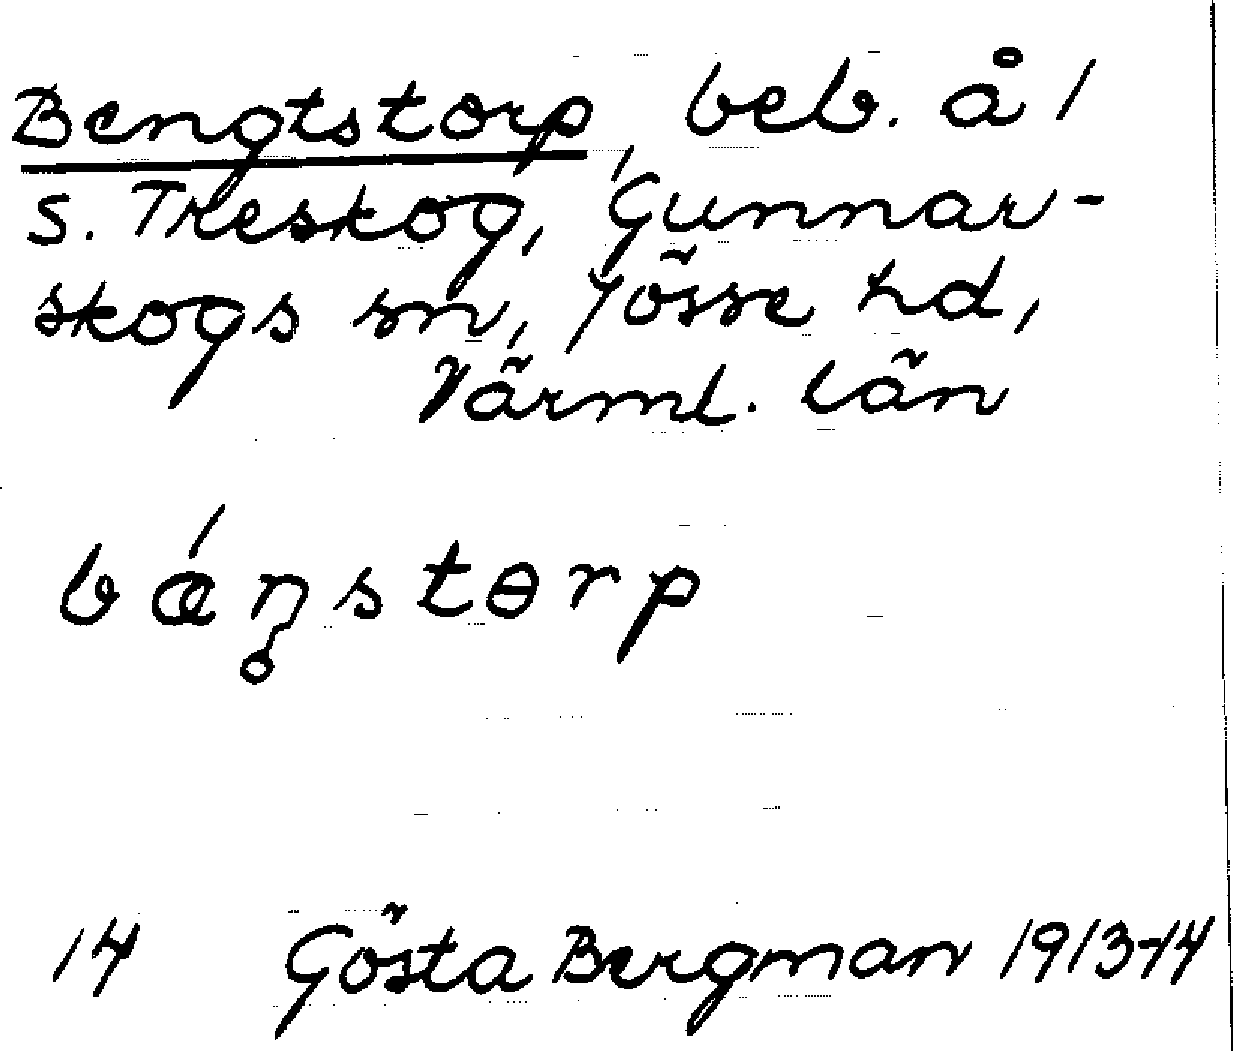 Bengtstorp, beb. å 1
S. Treskog, Gunnar-
skogs sn, Jösse hd,
Värml. län
bæ´ŋstɵrp
14 Gösta Bergman 1913-14